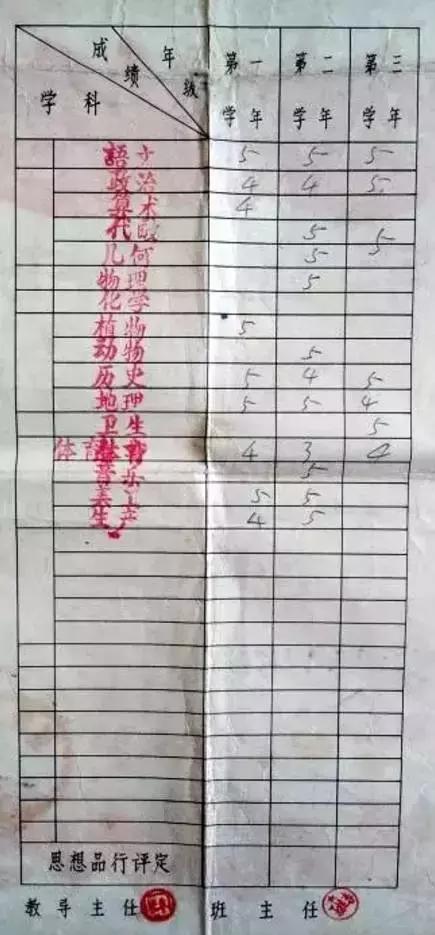 成绩 年级 第一学年 第二学年 第三学年
学科
語文 5 5 5
政治 4 4 5
算术 4
代数 5 5
几何 5
物理 5
化学
植物 5
动物 5
历史 5 4 5
地理 5 5 4
卫生 5
体育 4 3 4
音乐 5
美工 5 5
生产 4 5
思想品行评定
教导主任 班主任